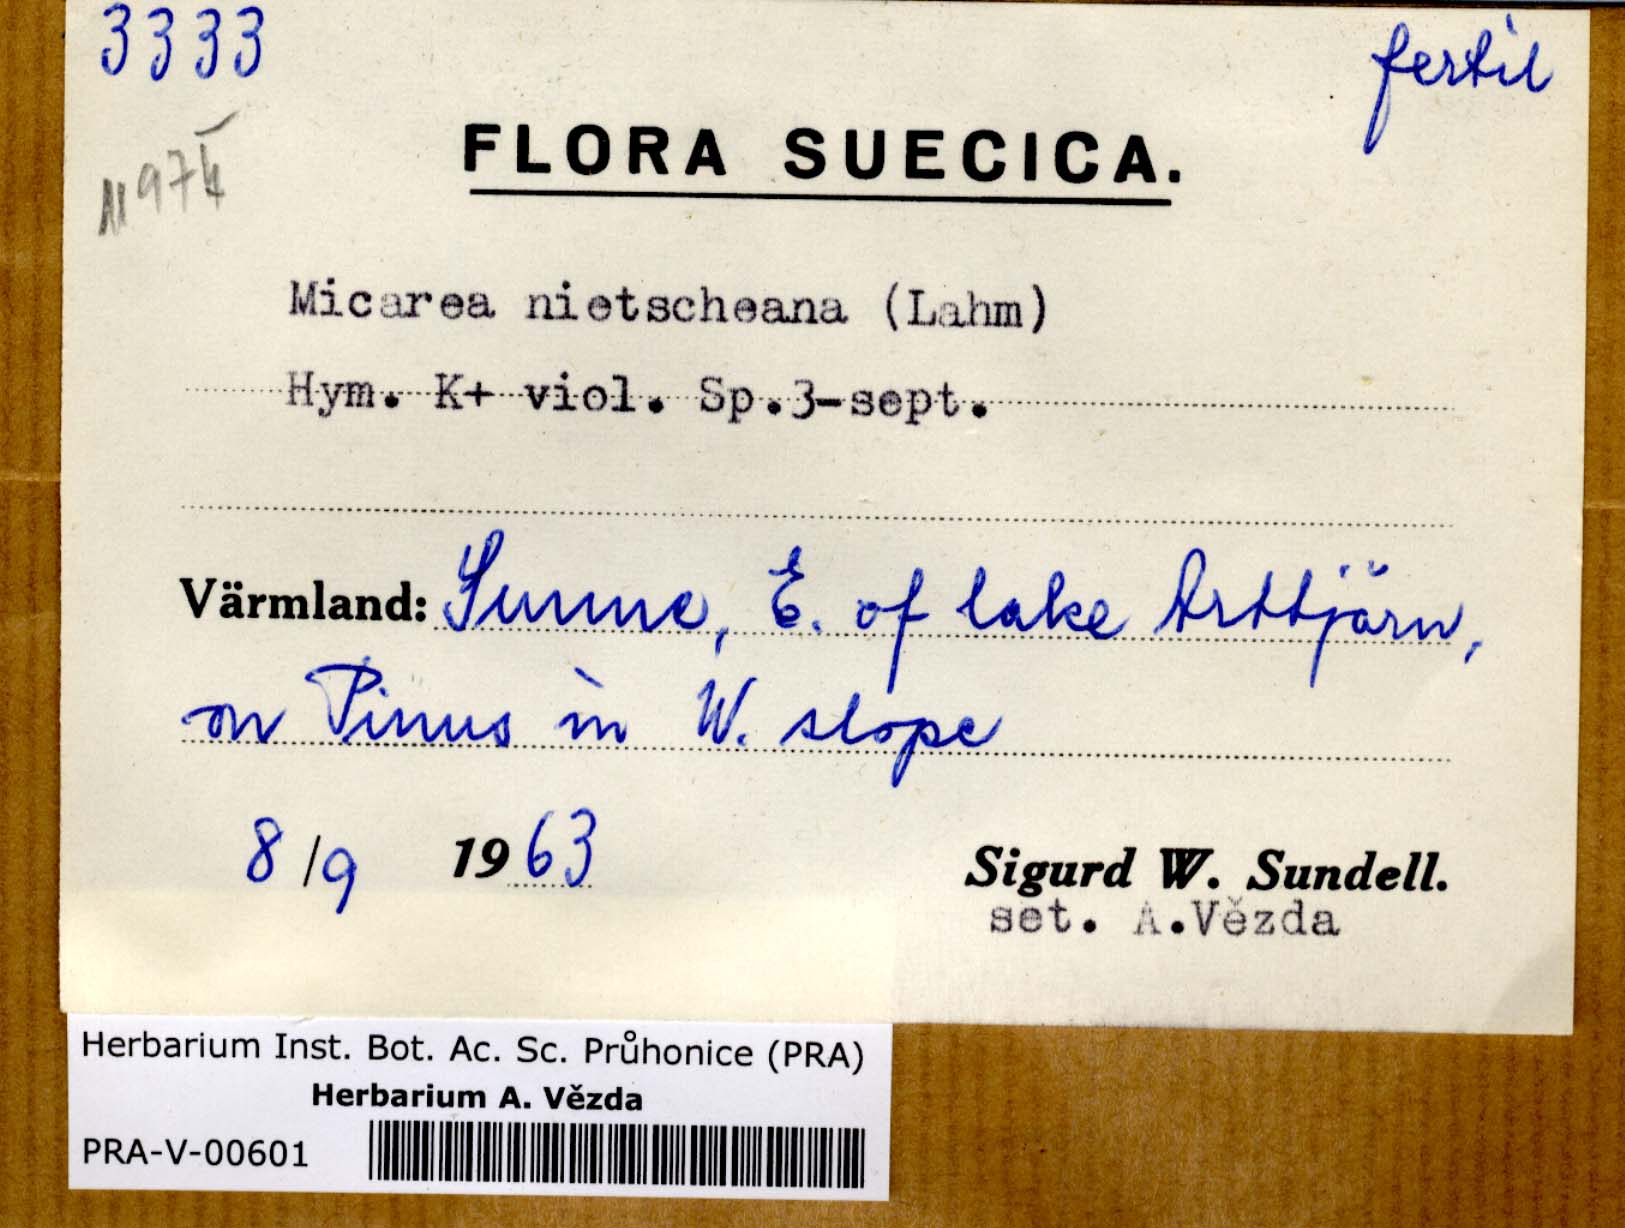 3333
fertil
FLORA SUECICA.
Micarea nietscheana (Lahm)
Hym. K+ viol. Sp.3-sept.
Värmland: Sunne, E. of lake Arttjärn,
on Pinus in W. slope
8/9 1963
Sigurd W. Sundell.
set. A.Vězda
Herbarium Inst. Bot. Ac. Sc. Průhonice (PRA)
Herbarium A. Vězda
PRA-V-00601